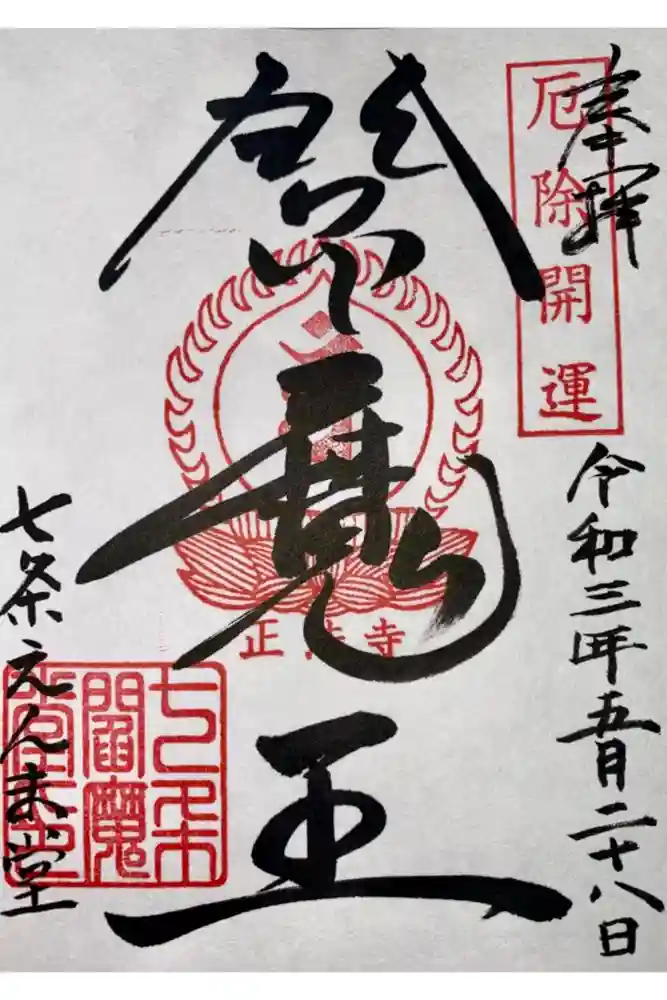 奉拝
厄除開運
令和三年五月二十八日
魔王
正寺
七条えんま堂
七条
閻魔
堂印